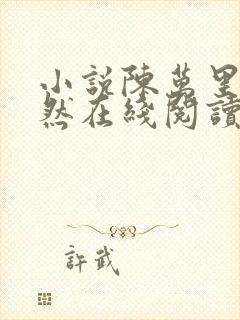 小說陳萬里
然在綫閱讀
許武